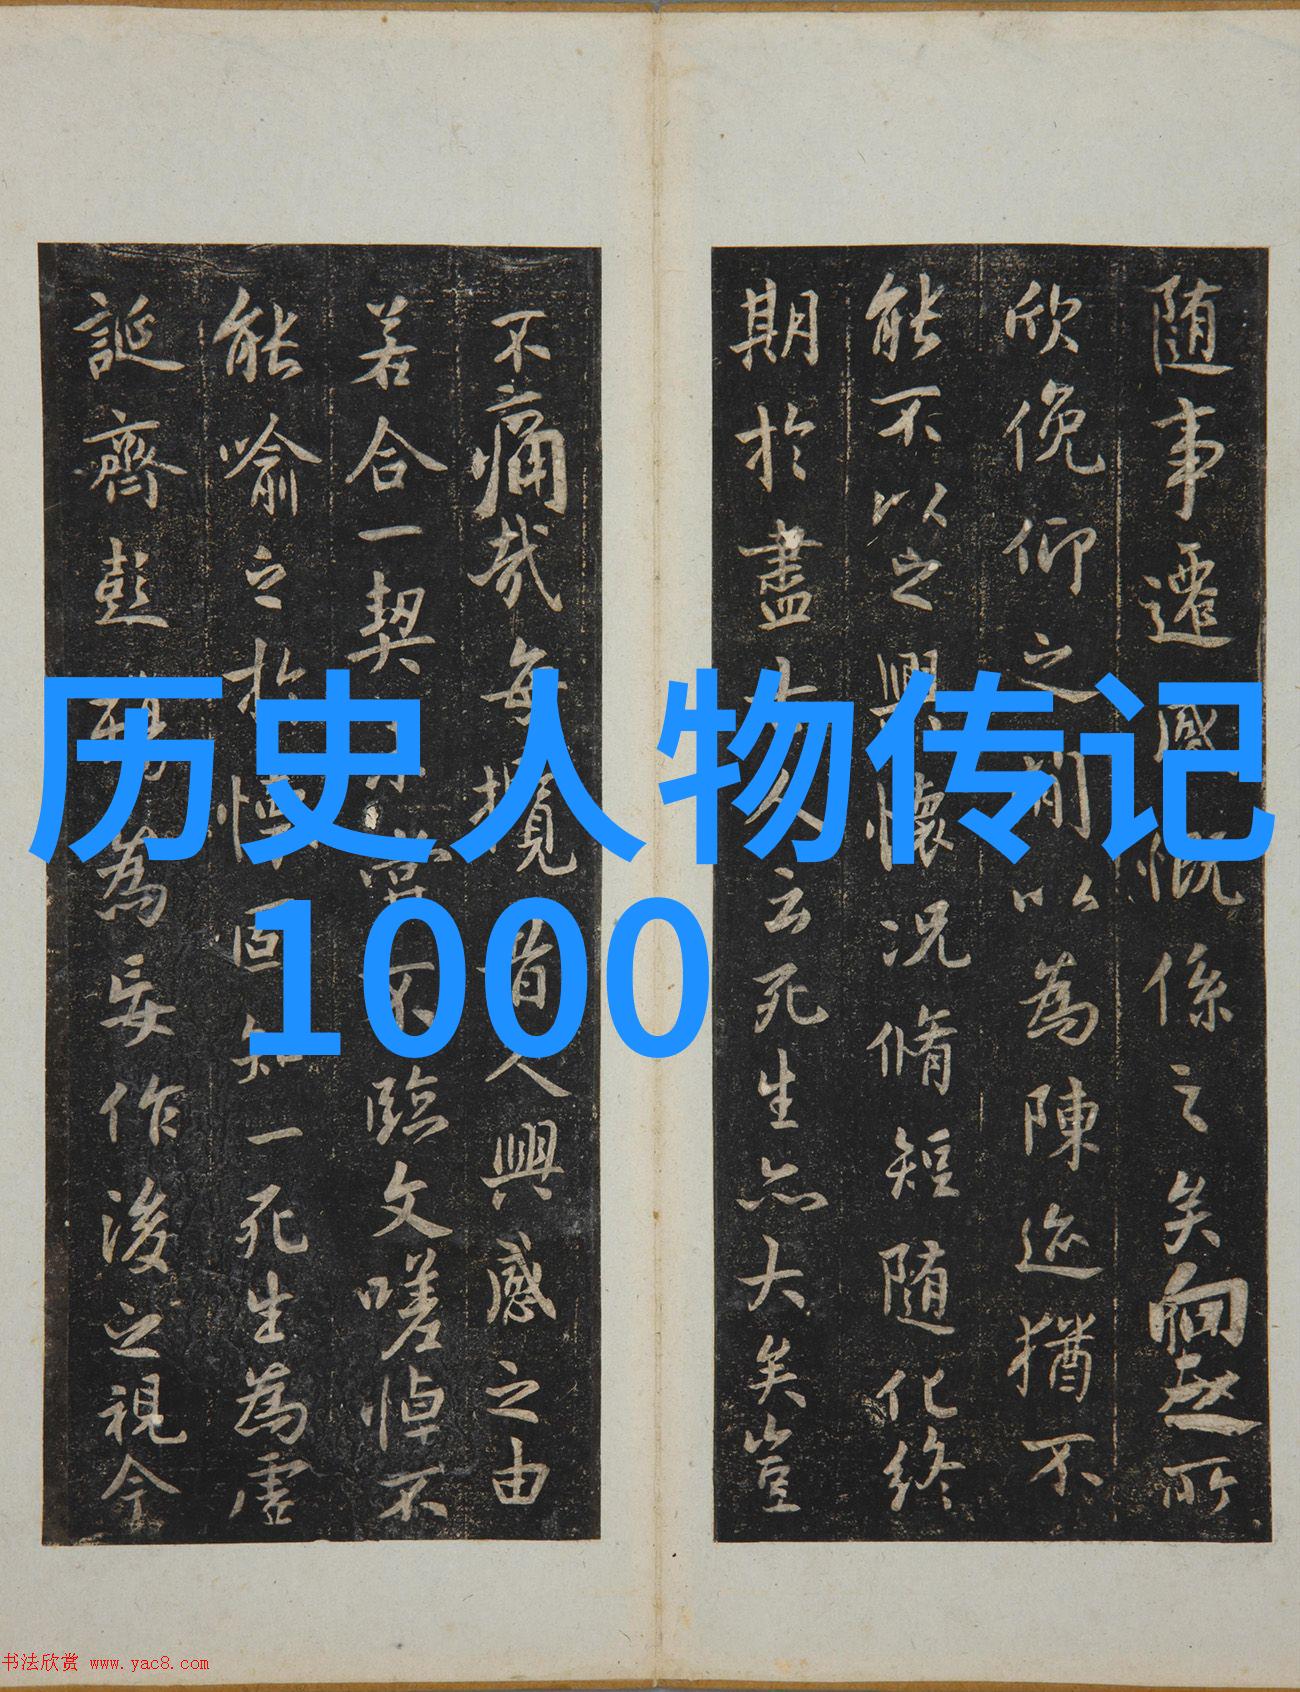 随事遷感慨係之矣向之所
欣俛仰之間以為陳迹猶不
能不以之興懷況脩短随化終
期於盡古人云死生亦大矣豈
不痛哉每攬昔人興感之由
若合一契未嘗不臨文嗟悼不
能喻之於懷固知一死生為虛
誕齊彭殤為妄作後之視今
历史人物传记
1000
书法欣赏 www.yac8.com